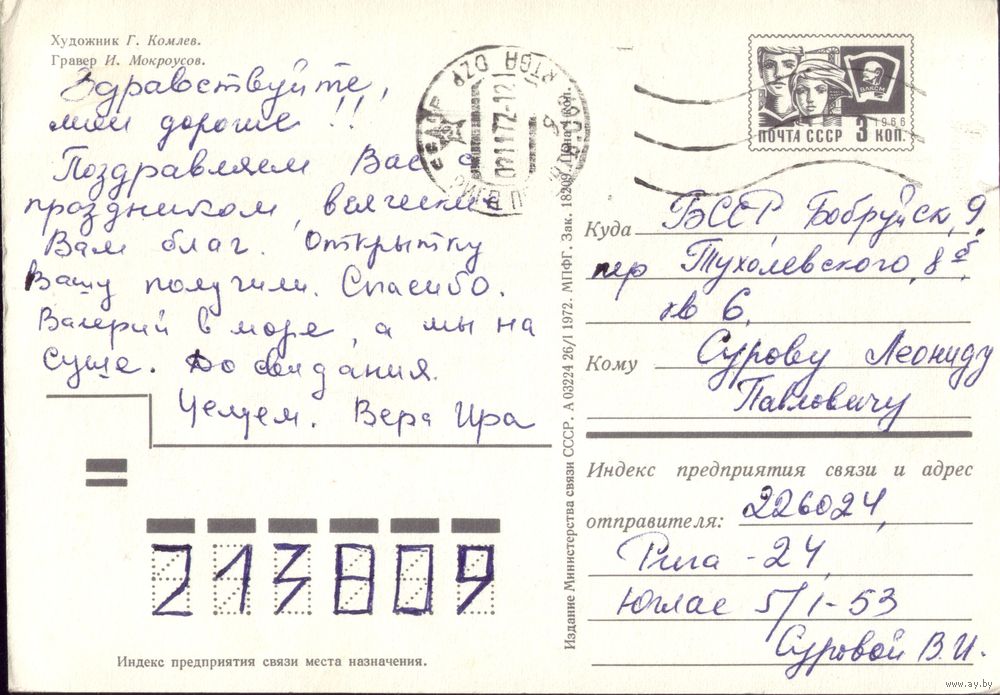 Художник Г. Комлев.
Гравер И. Мокроусов.
Здравствуйте,
мои дорогие!!
Поздравляем Вас с
праздником, всяческих
Вам благ. Открытку
Вашу получили. Спасибо.
Валерий в море, а мы на
суше. До свидания.
Целуем. Вера Ира
213809
Индекс предприятия связи места назначения.
Издание Министерства связи СССР. А 03224 26/I 1972. МПФГ. Зак. 18209. Цена 4 коп.
RIGA DZP
021172-12
ВЛКСМ
1966
ПОЧТА СССР 3 КОП.
Куда БССР Бобруйск, 9,
пер Тухолевского, 8 б,
кв 6,
Кому Сурову Леониду
Павловичу
Индекс предприятия связи и адрес
отправителя: 226024,
Рига-24,
Юглас 5/1-53
Суровой В.И.
www.ay.by